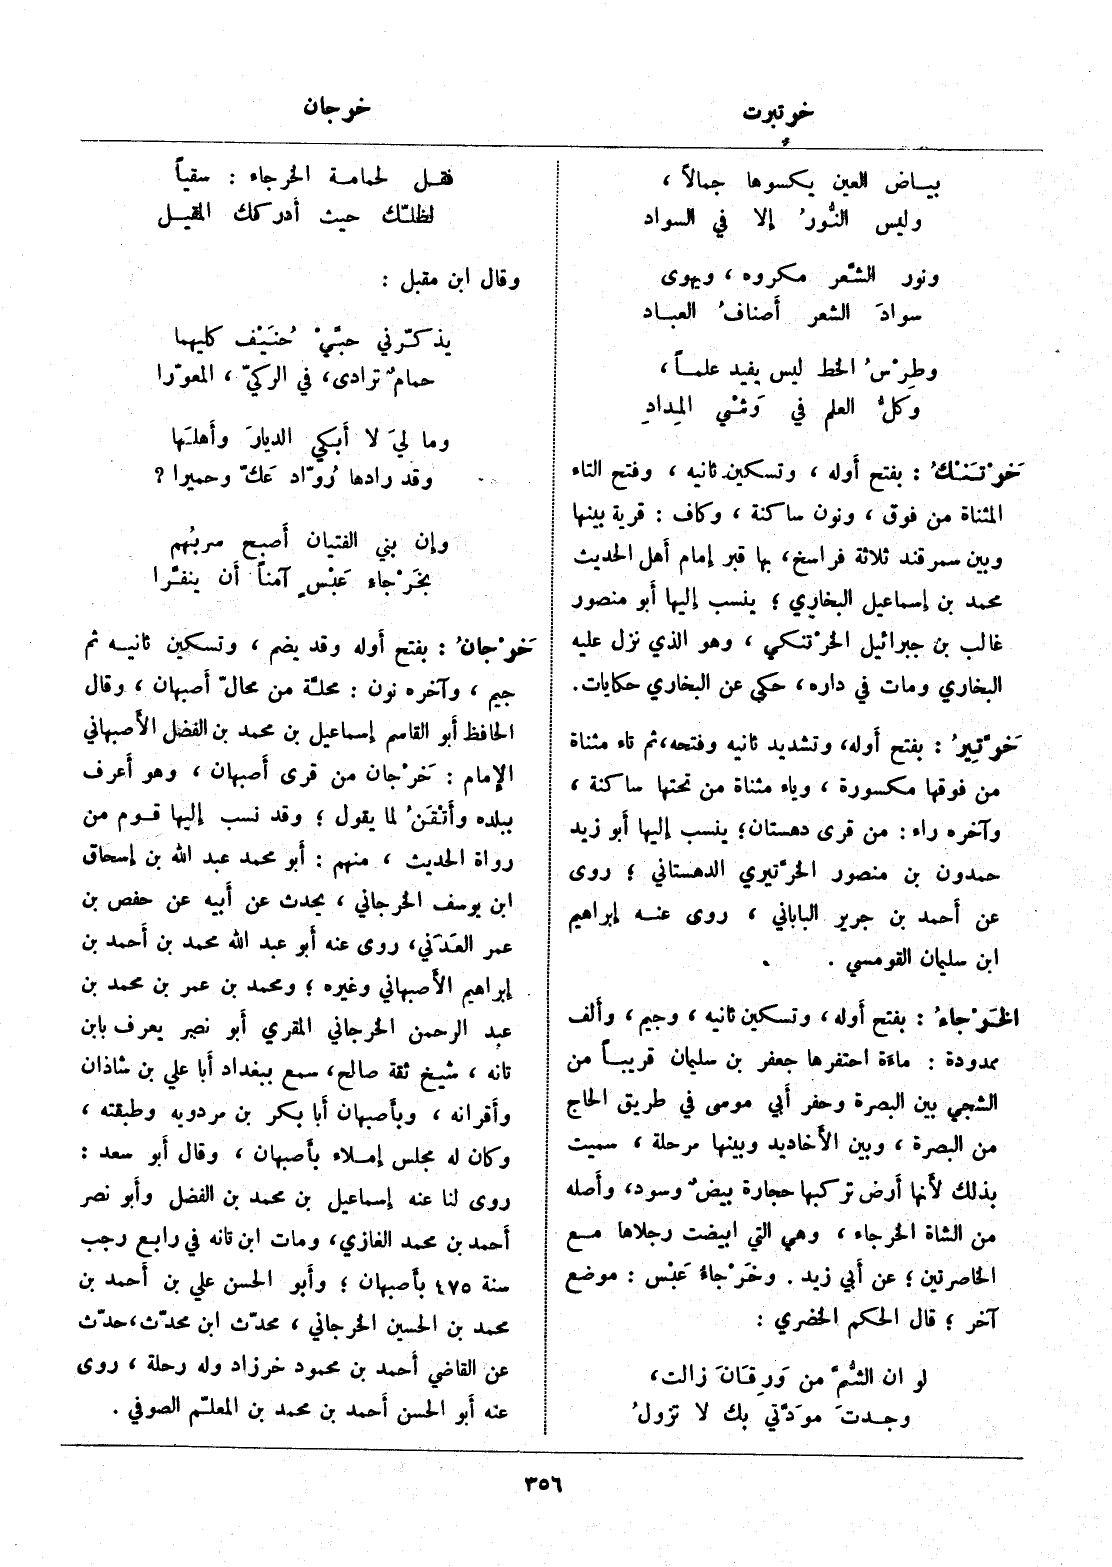 خرتبرت
خرجان
بياض العين يكسوها جمالاً ،
وليس النُّورُ إلا في السواد
ونور الشَّعر مكروه ، ويهوى
سوادَ الشعر أصنافُ العباد
وطِرْسُ الخط ليس يفيد علماً ،
وكلُّ العلم في وَشْيِ المِدادِ
خَرْتَنْكُ : بفتح أوله ، وتسكين ثانيه ، وفتح التاء
المثناة من فوق ، ونون ساكنة ، وكاف : قرية بينها
وبين سمرقند ثلاثة فراسخ ، بها قبر إمام أهل الحديث
محمد بن إسماعيل البخاري ؛ ينسب إليها أبو منصور
غالب بن جبرائيل الخرْتنكي ، وهو الذي نزل عليه
البخاري ومات في داره ، حكي عن البخاري حكايات.
خَرَّتِيرُ : بفتح أوله، وتشديد ثانيه وفتحه، ثم تاء مثناة
من فوقها مكسورة ، وياء مثناة من تحتها ساكنة ،
وآخره راء : من قرى دهستان ؛ ينسب إليها أبو زيد
حمدون بن منصور الخرَّتيري الدهستاني ؛ روى
عن أحمد بن جرير الباباني ، روى عنه إبراهيم
ابن سليمان القومسي .
الخَرْجاءُ : بفتح أوله ، وتسكين ثانيه ، وجيم ، وألف
ممدودة : ماءة احتفرها جعفر بن سليمان قريباً من
الشجي بين البصرة وحفر أبي موسى في طريق الحاج
من البصرة ، وبين الأخاديد وبينها مرحلة ، سميت
بذلك لأنها أرض تركبها حجارة بيضٌ وسود، وأصله
من الشاة الخرجاء ، وهي التي ابيضت رجلاها مع
الخاصرتين ؛ عن أبي زيد . وخَرْجاءُ عَبْس : موضع
آخر ؛ قال الحكم الخضري :
لو ان الشُّمَّ من وَرِقَانَ زالت ،
وجدتَ مودَّتي بك لا تزولُ
فقل لحمامة الخرجاء : سقياً
لظلّك حيث أدركك المقيل
وقال ابن مقبل :
يذكّرني حبَّيْ حُنَيْف كليهما
حمامٌ ترادى، في الركيّ ، المعوّرا
وما ليَ لا أبكي الديارَ وأهلَها
وقد رادها رُوّاد عَكّ وحميرا ؟
وإن بني الفتيان أصبح سربُهم
بخَرْجاء عَبْسٍ آمناً أن ينفَّرا
خَرْجانُ : بفتح أوله وقد يضم ، وتسكين ثانيه ثم
جيم ، وآخره نون : محلة من محالّ أصبهان ، وقال
الحافظ أبو القاسم إسماعيل بن محمد بن الفضل الأصبهاني
الإمام : خَرْجان من قرى أصبهان ، وهو أعرف
ببلده وأتْقَنُ لما يقول ؛ وقد نسب إليها قوم من
رواة الحديث ، منهم : أبو محمد عبد الله بن إسحاق
ابن يوسف الخرجاني ، يحدث عن أبيه عن حفص بن
عمر العَدَني ، روى عنه أبو عبد الله محمد بن أحمد بن
إبراهيم الأصبهاني وغيره ؛ ومحمد بن عمر بن محمد بن
عبد الرحمن الخرجاني المقري أبو نصر يعرف بابن
تانه ، شيخ ثقة صالح ، سمع ببغداد أبا علي بن شاذان
وأقرانه ، وبأصبهان أبا بكر بن مردويه وطبقته ،
وكان له مجلس إملاء بأصبهان ، وقال أبو سعد :
روى لنا عنه إسماعيل بن محمد بن الفضل وأبو نصر
أحمد بن محمد الغازي ، ومات ابن تانه في رابع رجب
سنة ٤٧٥ بأصبهان ؛ وأبو الحسن علي بن أحمد بن
محمد بن الحسين الخرجاني ، محدّث ابن محدّث ، حدّث
عن القاضي أحمد بن محمود خرزاد وله رحلة ، روى
عنه أبو الحسن أحمد بن محمد بن المعلّم الصوفي .
٣٥٦